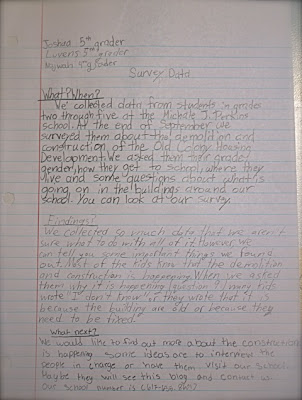 Joshua 5th grader
Lurens 5th grader
Najwah 4th grader
Survey Data
What? When?
We collected data from students in grades
two through five at the Michael J. Perkins
school. At the end of September we
surveyed them about the demolition and
construction of the Old Colony Housing
Development. We asked them their grade,
gender, how they get to school, where they
live and some questions about what is
going on in the buildings around our
school. You can look at our survey.
Findings?
We collected so much data that we aren't
sure what to do with all of it. However, we
can tell you some important things we found
out. Most of the kids know that the demolition
and construction is happening. When we asked
them why it is happening (question ) many kids
wrote "I don't know" or they wrote that it is
because the building are old or because they
need to be fixed.
What next?
We would like to find out more about the construction
is happening. Some ideas are to interview the
people in charge or have them visit our school.
Maybe they will see this blog and contact us.
Our school number is